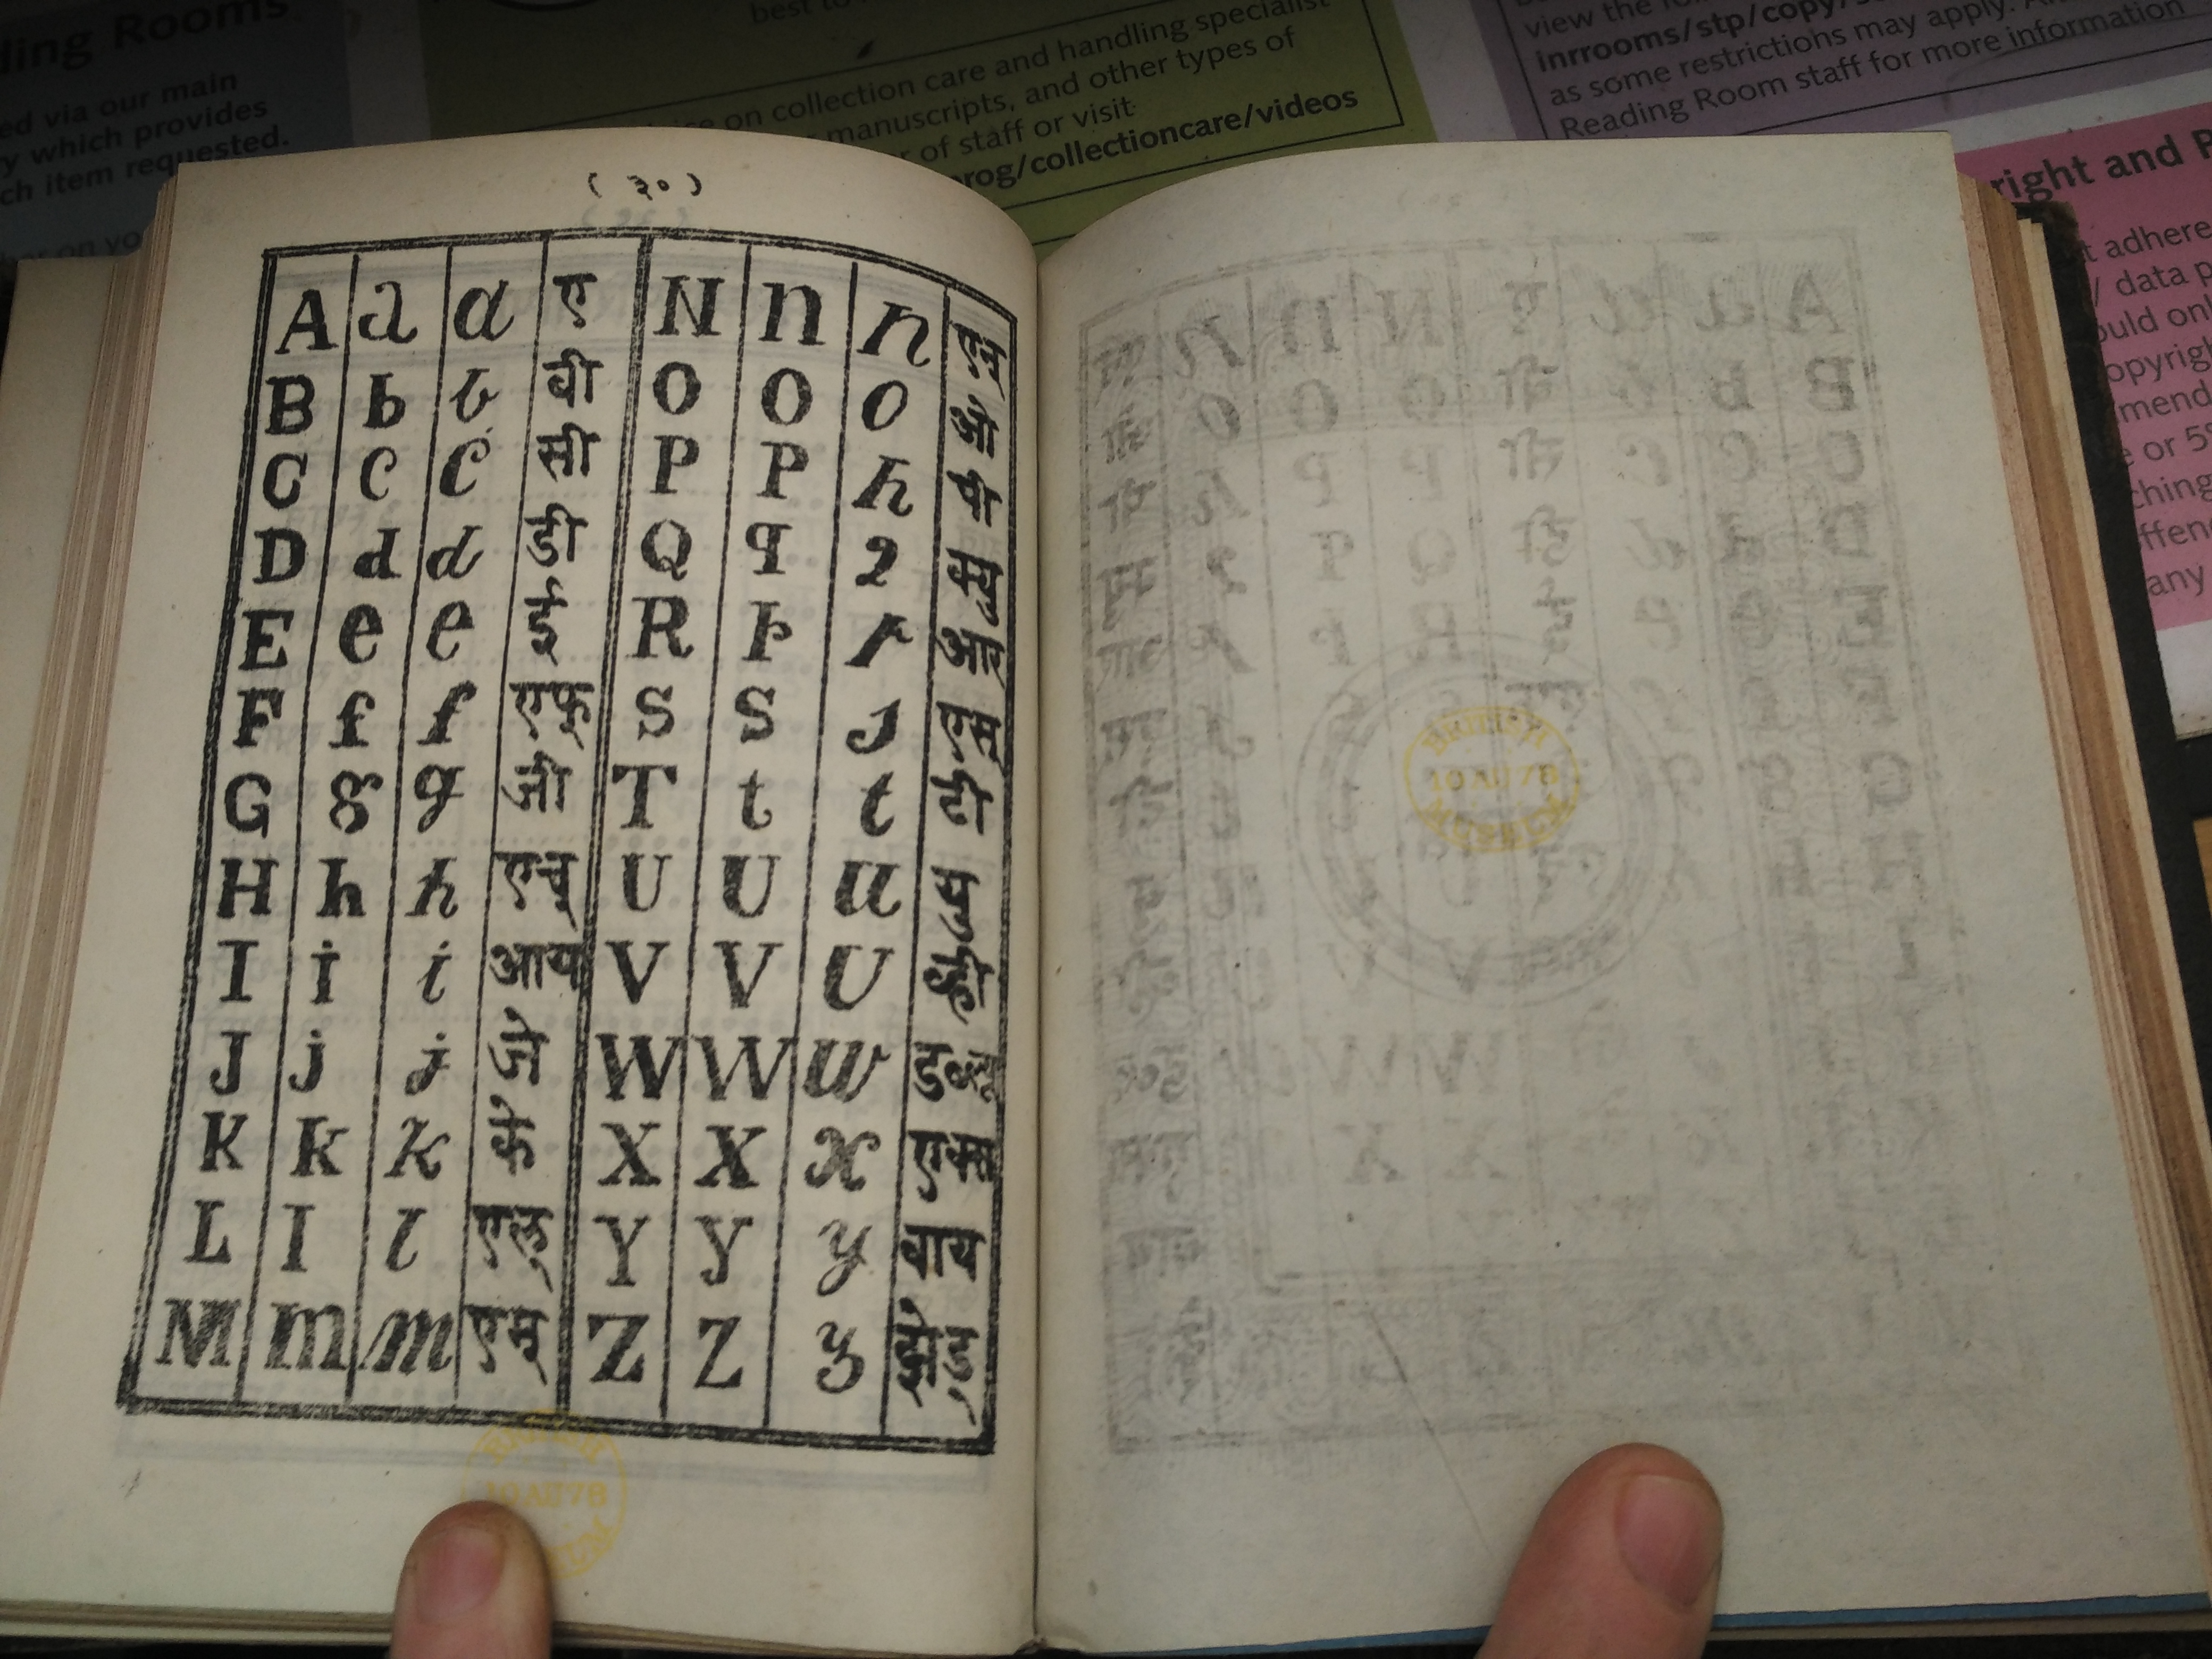 ding Rooms
ed via our main
y which provides
ch item requested.
on yo
best to
on collection care and handling specialist
manuscripts, and other types of
of staff or visit
prog/collectioncare/videos
view the
inrrooms/stp/copy/
as some restrictions may apply.
Reading Room staff for more information
right and P
t adhere
/ data p
ould on
opyrigh
mend
e or 5%
ching
ffen
any
( ३० )
A a a ए N n n एन्
B b b बी O O O ओ
C c c सी P P h पी
D d d डी Q q q क्यु
E e e ई R r r आर
F f f एफ् S S s एस्
G g g जी T t t टी
H h h एच् U U u यु
I i i आय V V U व्ही
J j j जे W W w डब्ल्यू
K k k के X X x एक्स
L l l एल् Y y y वाय
M m m एम् Z Z z झेड्
BRITISH
10 AU 78
MUSEUM
10 AU 78